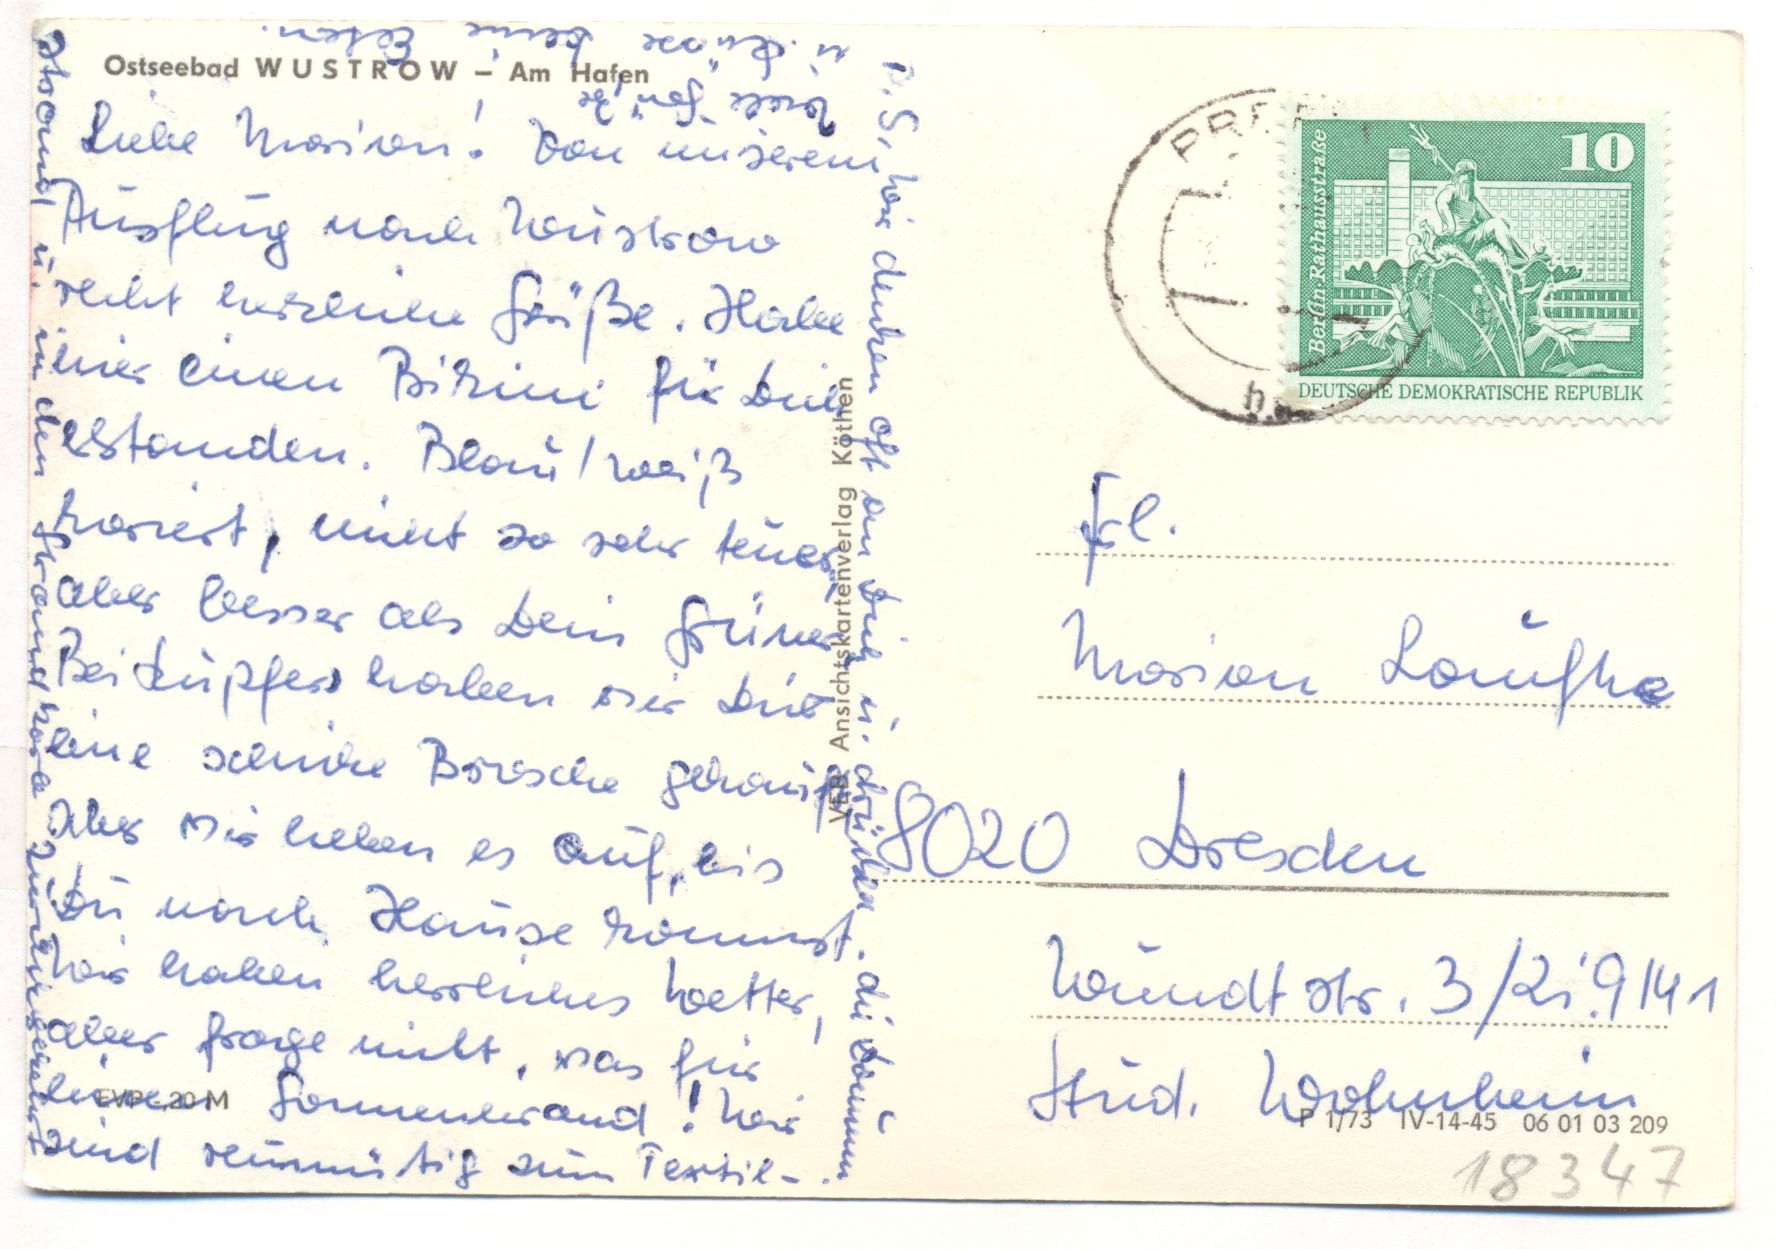 Ostseebad WUSTROW – Am Hafen
Liebe Marion! Von unserem
Ausflug nach Wustrow
recht herzliche Grüße. Habe
hier einen Bikini für Dich
erstanden. Blau/weiß
kariert, nicht so sehr teuer,
aber besser als Dein Grüner.
Bei Kupfer haben wir Dir
eine schicke Brosche gekauft.
Aber wir heben es auf, bis
Du nach Hause kommst.
Wir haben herrliches Wetter,
aber frage nicht, was für
einen Sonnenbrand! Wir
sind reumütig zum Textil-
strand u. in den Strandkorb zurückgekehrt.
Viele Grüße
u. Küsse Deine Eltern.
P.S. Wir denken oft an Dich u. drücken die Daumen.
VEB Ansichtskartenverlag Köthen
EVP -,20 M
10
Berlin, Rathausstraße
DEUTSCHE DEMOKRATISCHE REPUBLIK
Frl.
Marion Laufke
8020 Dresden
Wundtstr. 3/Zi. 9141
Stud. Wohnheim
P 1/73 IV-14-45 06 01 03 209
18347